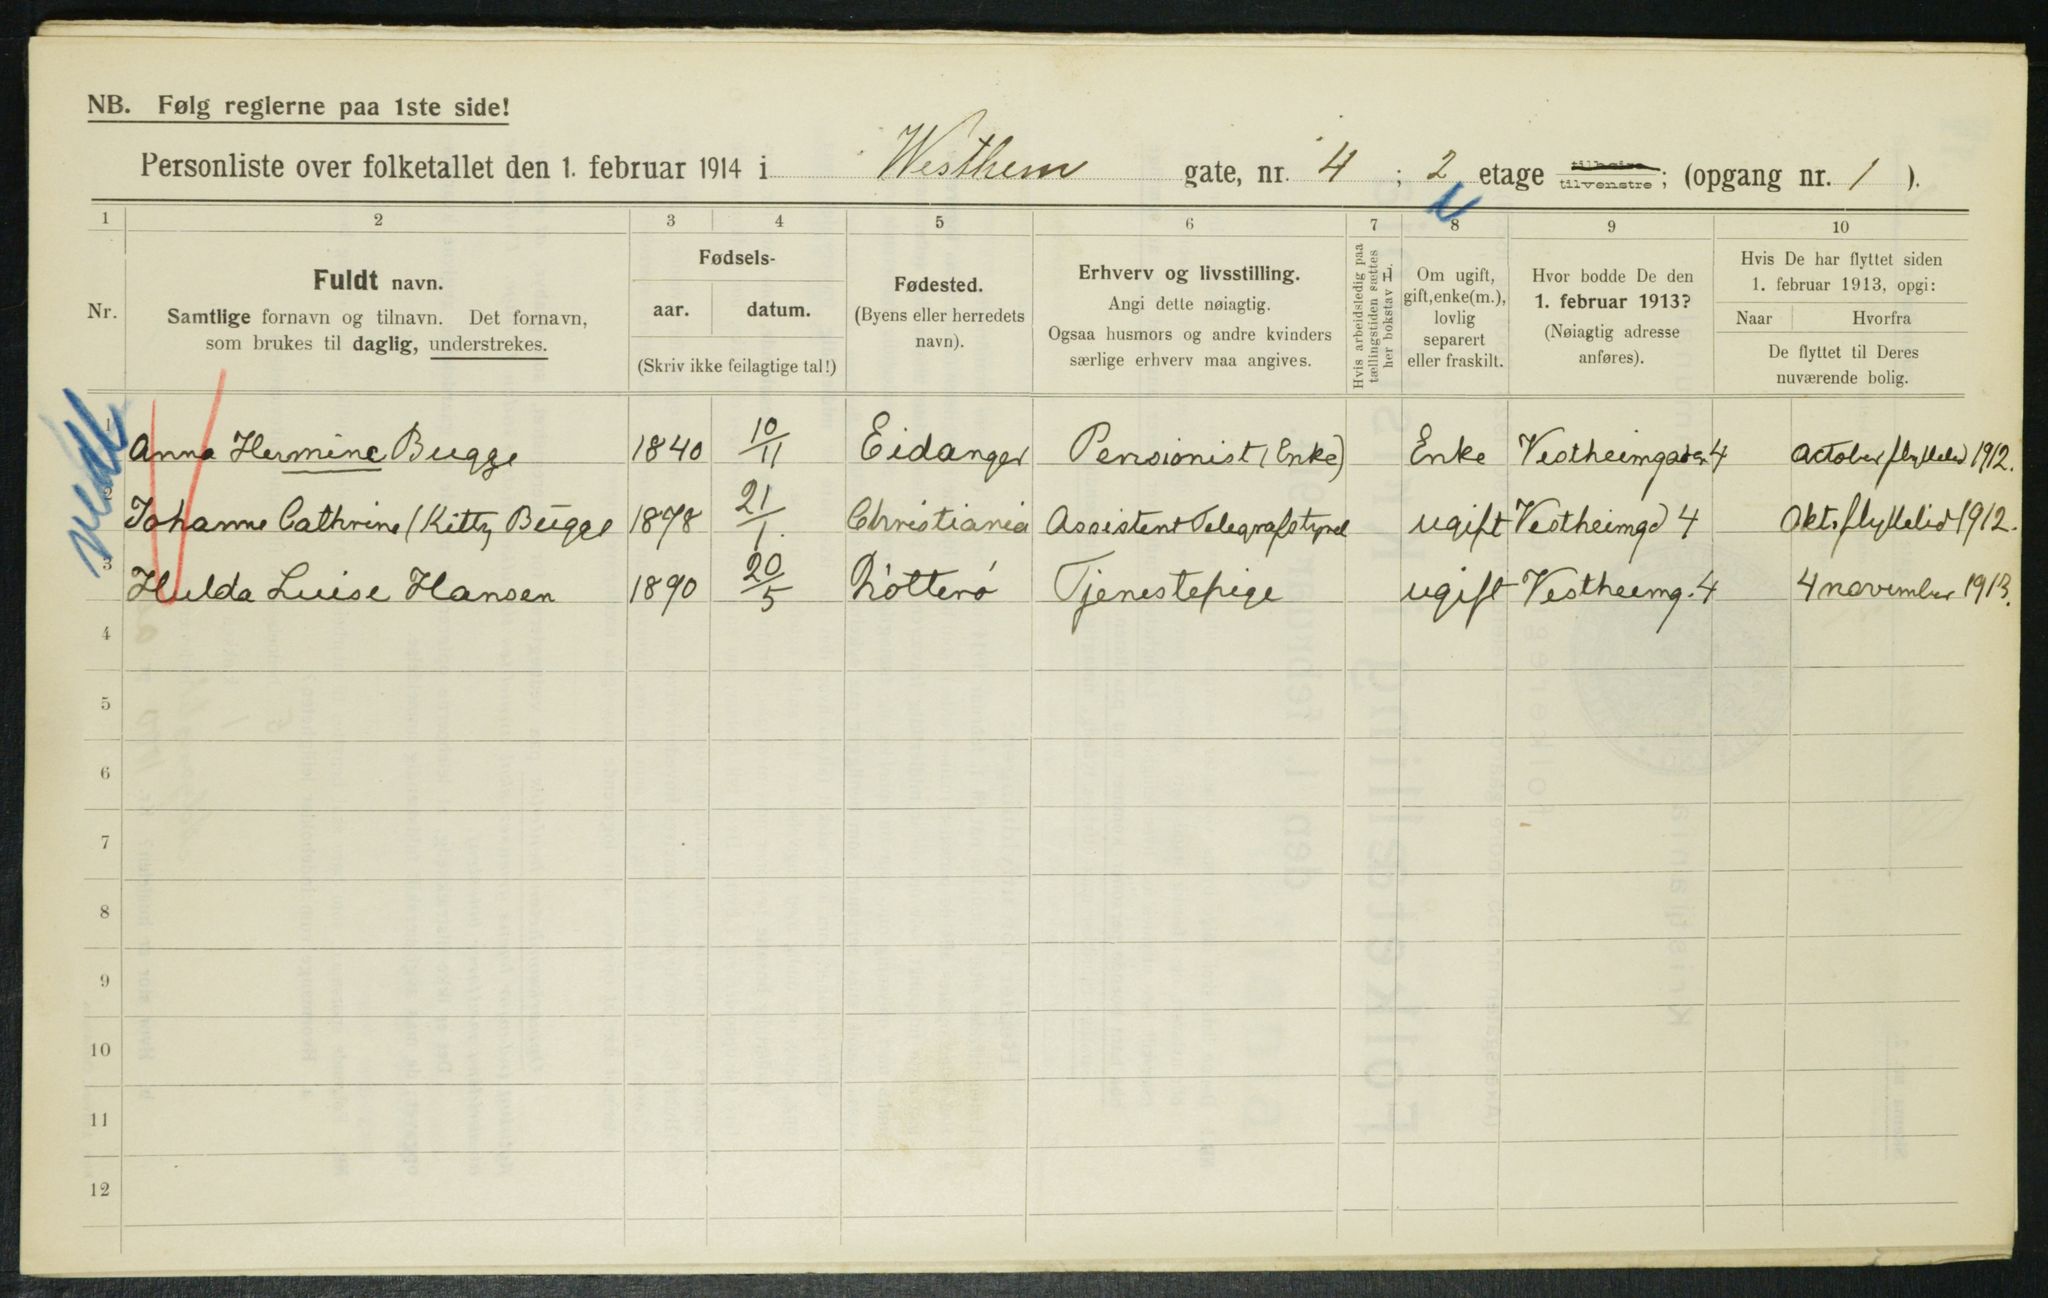 NB. Følg reglerne paa 1ste side!
Personliste over folketallet den 1. februar 1914 i Westhem gate, nr. 4 ; 2 etage tilhøire tilvenstre; (opgang nr. 1 ).
1 2 3 4 5 6 7 8 9 10
Nr.
Fuldt navn.
Samtlige fornavn og tilnavn. Det fornavn,
som brukes til daglig, understrekes.
Fødsels-
aar. datum.
(Skriv ikke feilagtige tal!)
Fødested.
(Byens eller herredets
navn).
Erhverv og livsstilling.
Angi dette nøiagtig.
Ogsaa husmors og andre kvinders
særlige erhverv maa angives.
Hvis arbeidsledig paa
tællingstiden sættes
her bokstav L.
Om ugift,
gift, enke(m.),
lovlig
separert
eller fraskilt.
Hvor bodde De den
1. februar 1913?
(Nøiagtig adresse
anføres).
Hvis De har flyttet siden
1. februar 1913, opgi:
Naar Hvorfra
De flyttet til Deres
nuværende bolig.
1 Anna Hermine Bugge 1840 10/11 Eidanger Pensionist (Enke) Enke Vestheimgaden 4 October flyttetid 1912.
2 Johanne Cathrine (Kitty) Bugge 1878 21/1. Christiania Assistent Telegrafstyrel ugift Vestheimgd 4 Okt. flyttetid 1912.
3 Hulda Luise Hansen 1890 20/5 Nøtterø Tjenestepige ugift Vestheimg. 4 4 november 1913.
4
5
6
7
8
9
10
11
12